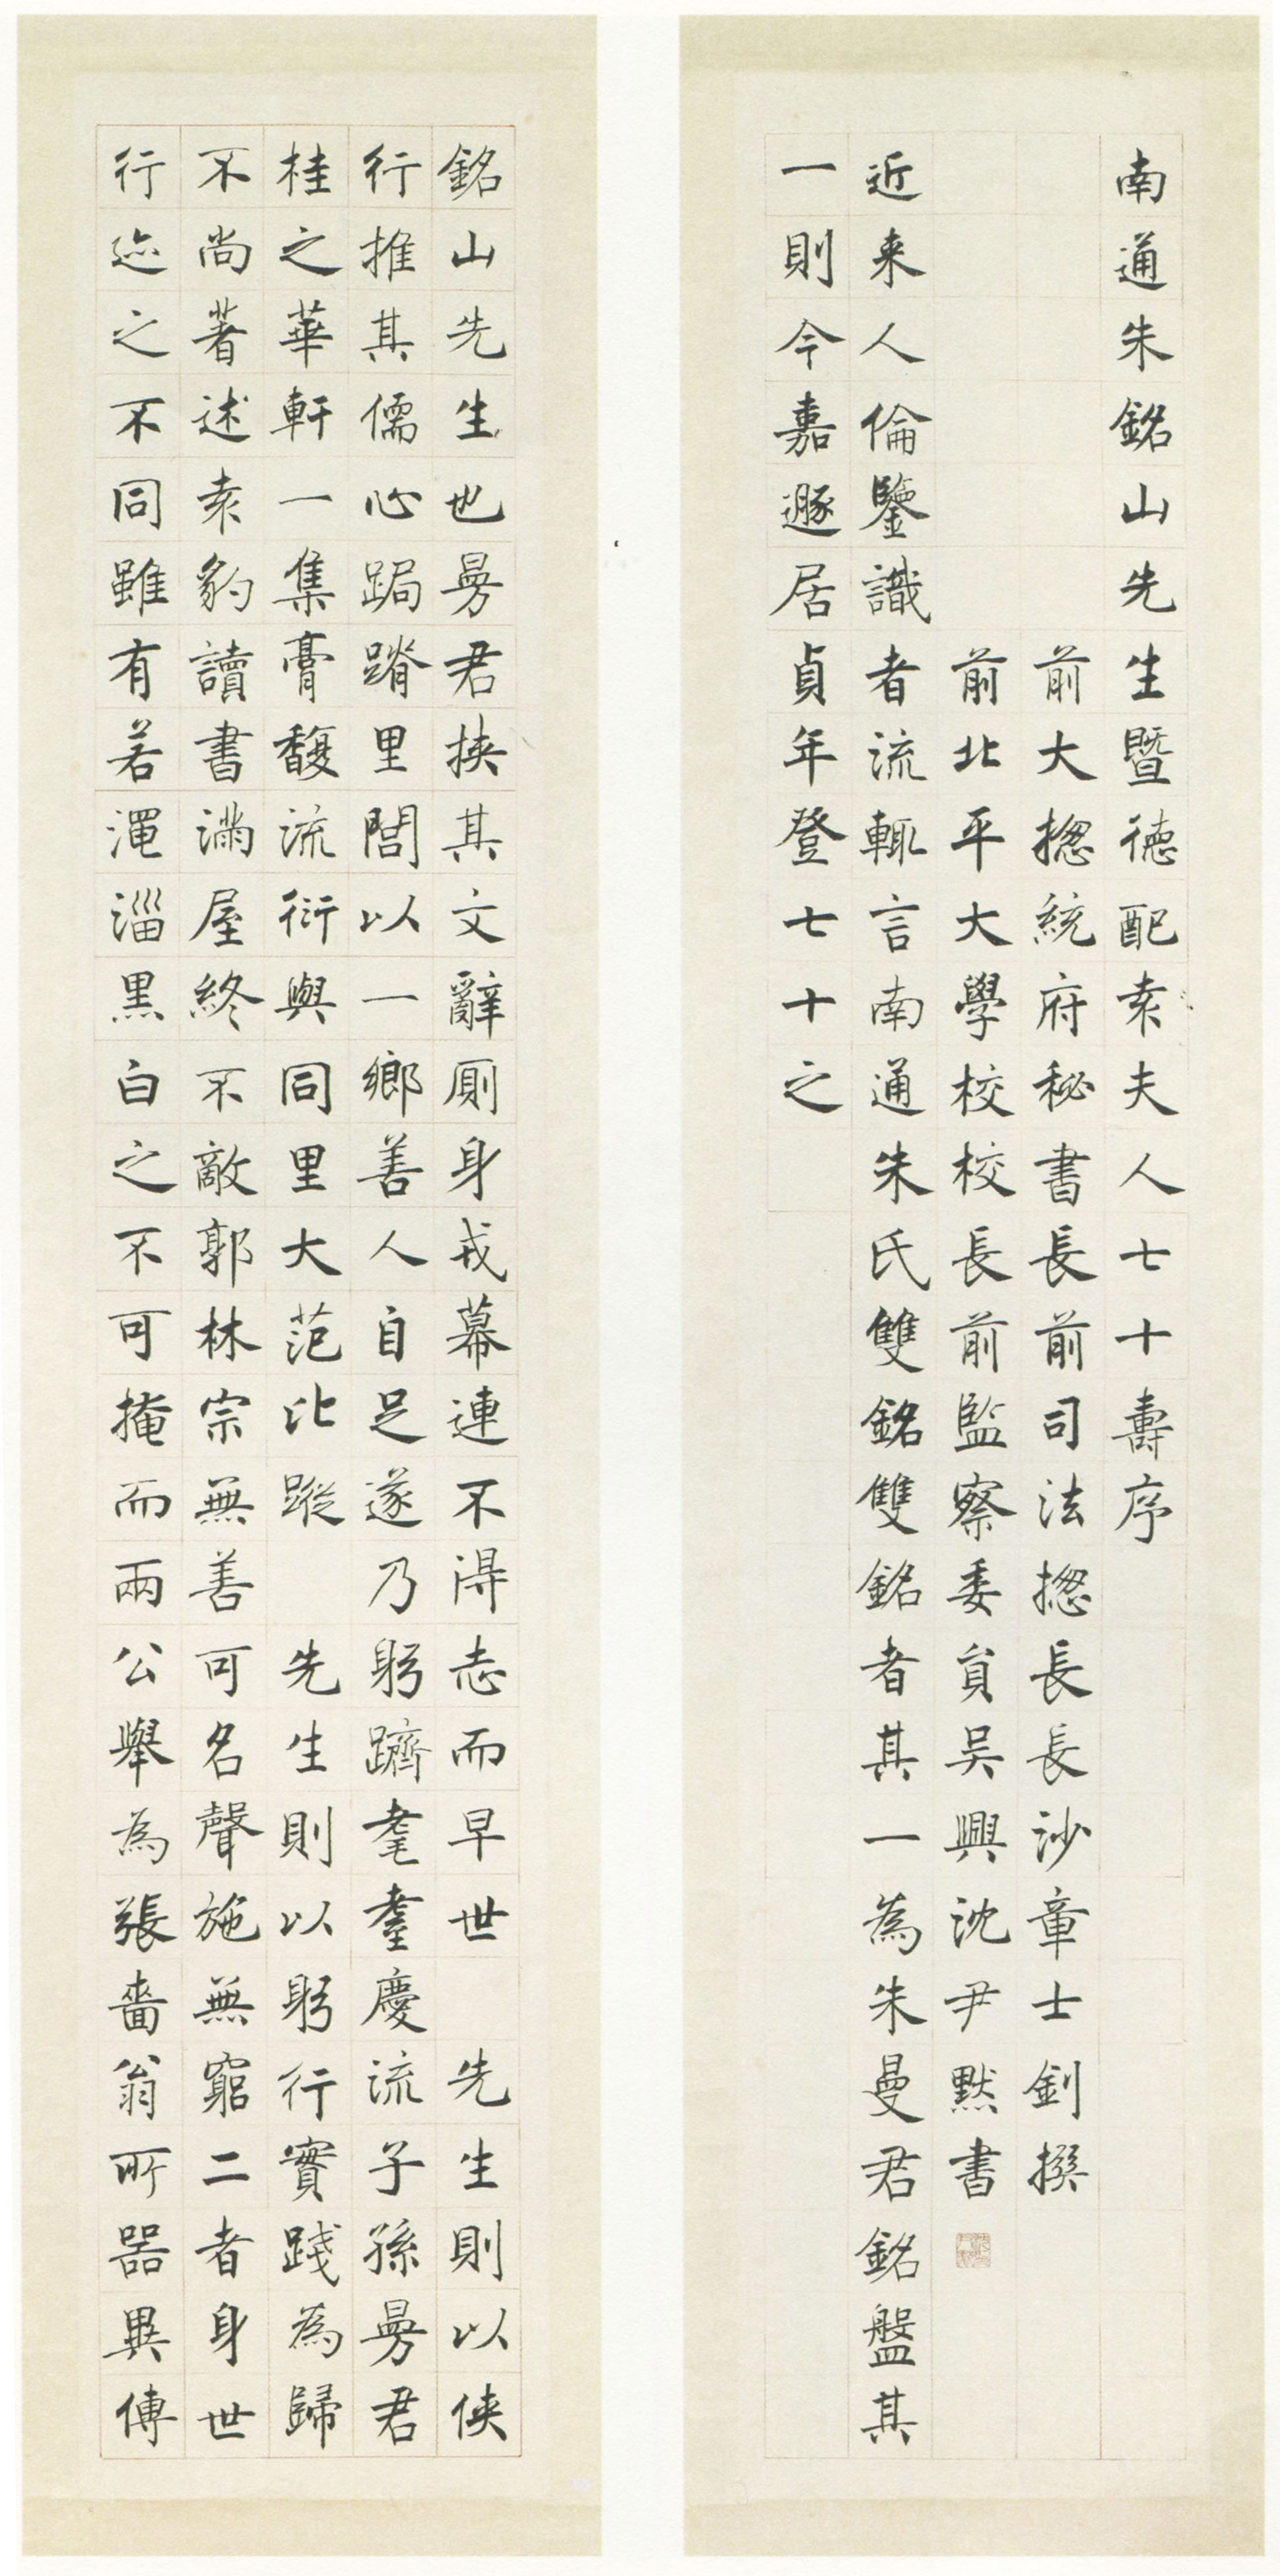 南通朱銘山先生暨德配袁夫人七十壽序
前大揔統府秘書長前司法揔長長沙章士釗撰
前北平大學校校長前監察委員吳興沈尹默書
近来人倫鑒識者流輒言南通朱氏雙銘雙銘者其一為朱曼君銘盤其
一則今嘉遯居貞年登七十之
銘山先生也曼君挾其文辭厠身戎幕連不得志而早世 先生則以俠
行推其儒心跼蹐里閭以一鄉善人自足遂乃躬躋耄耋慶流子孫曼君
桂之華軒一集膏馥流衍與同里大范比蹤 先生則以躬行實踐為歸
不尚著述袁豹讀書滿屋終不敵郭林宗無善可名聲施無窮二者身世
行迹之不同雖有若澠淄黑白之不可掩而兩公舉為張嗇翁所器異傳